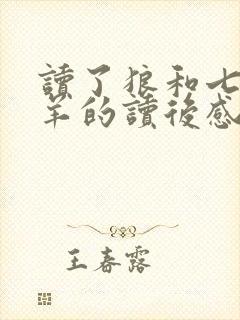 讀了狼和七
羊的讀後感
王春露